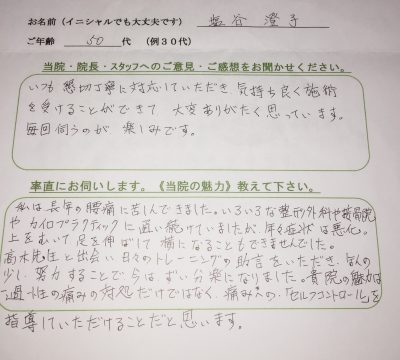 お名前（イニシャルでも大丈夫です） 塩谷 澄子
ご年齢 50 代 （例３０代）
当院・院長・スタッフへのご意見・ご感想をお聞かせください。
いつも 懇切丁寧に対応していただき、気持ち良く施術
を受けることができて 大変ありがたく思っています。
毎回伺うのが 楽しみです。
率直にお伺いします。《当院の魅力》教えて下さい。
私は長年の腰痛に苦しんできました。いろいろな整形外科や接骨院
やカイロプラクティックに通い続けていましたが、年々症状は悪化。
上をむいて足を伸ばして横になることもできませんでした。
高木先生と出会い日々のトレーニングの助言をいただき、ほんの
少し努力することで今は、ずい分楽になりました。貴院の魅力は
過性の痛みの対処だけではなく、痛みへの「セルフコントロール」を
指導していただけることだと思います。